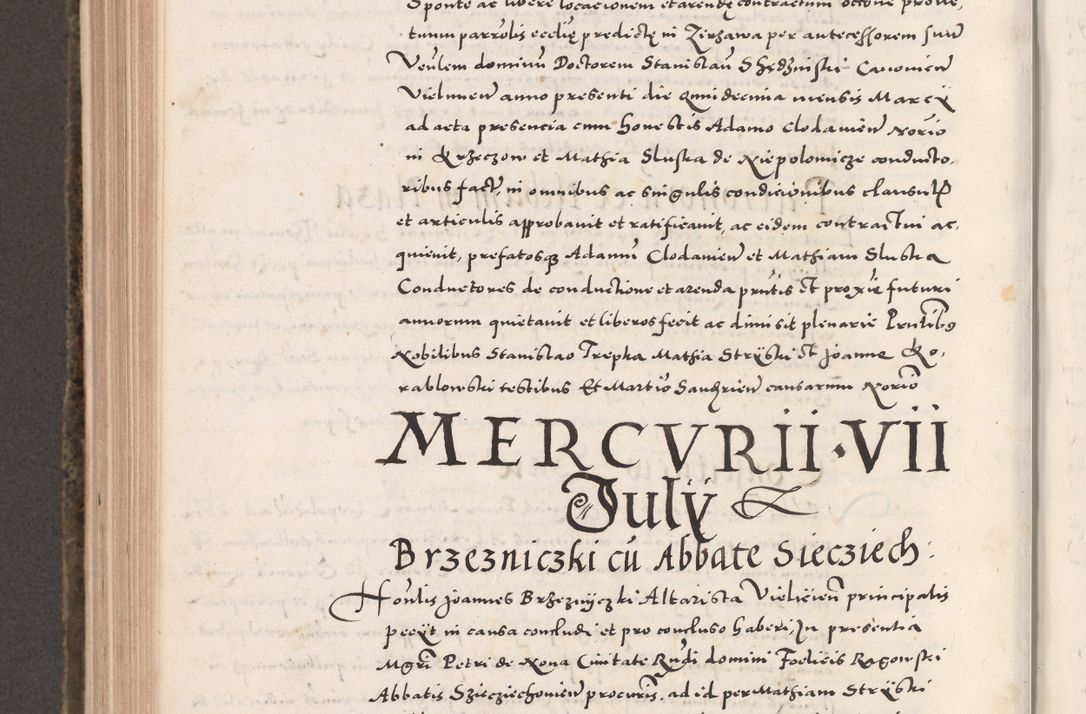 Sponte ac libere locacionem et arendę contractum octine prove,
tuum parrolis ecclię predictę in Zirzawa per antecessorem suū
Veūlem dominū Doctorem Stanislaū Shędzinski Canonicū
Vielunen anno presenti die quindecima mensis Marcÿ
ad acta presencia cum honestis Adamo Clodawień Norio
in Krzeczow et Mathia Sluska de Niepolomicze conducto,
ribus fact, in omnibus ac singulis condicionibus clausulis
et articulis approbavit et ratificavit, ac eidem contractui ac,
quievit, prefatosq Adamū Clodawień et Mathiam Sluska
Conductores de conductione et arenda pn̄tis et proxīe futuri
annorum quietavit et liberos fecit ac dimisit plenarie Pn̄tibus
Nobilibus Stanislao Trepka Mathia Strÿski et Joanne Ko,
rablowski testibus Et Martīo Sandzień causarum Norio
MERCVRII · VII
Julÿ
Brzezniczki cū Abbate Siecziech:
Hon̄lis Joannes Brzeznÿczki Altarista Vielicień principalis
peeÿt in causa concludi et pro concluso haberi, In presentia
Mgrī Petri de Nova Civitate Rn̄di domini Foelicis Rogowski
Abbatis Sziecziechowień procuris, ad id per Mathiam Strÿski